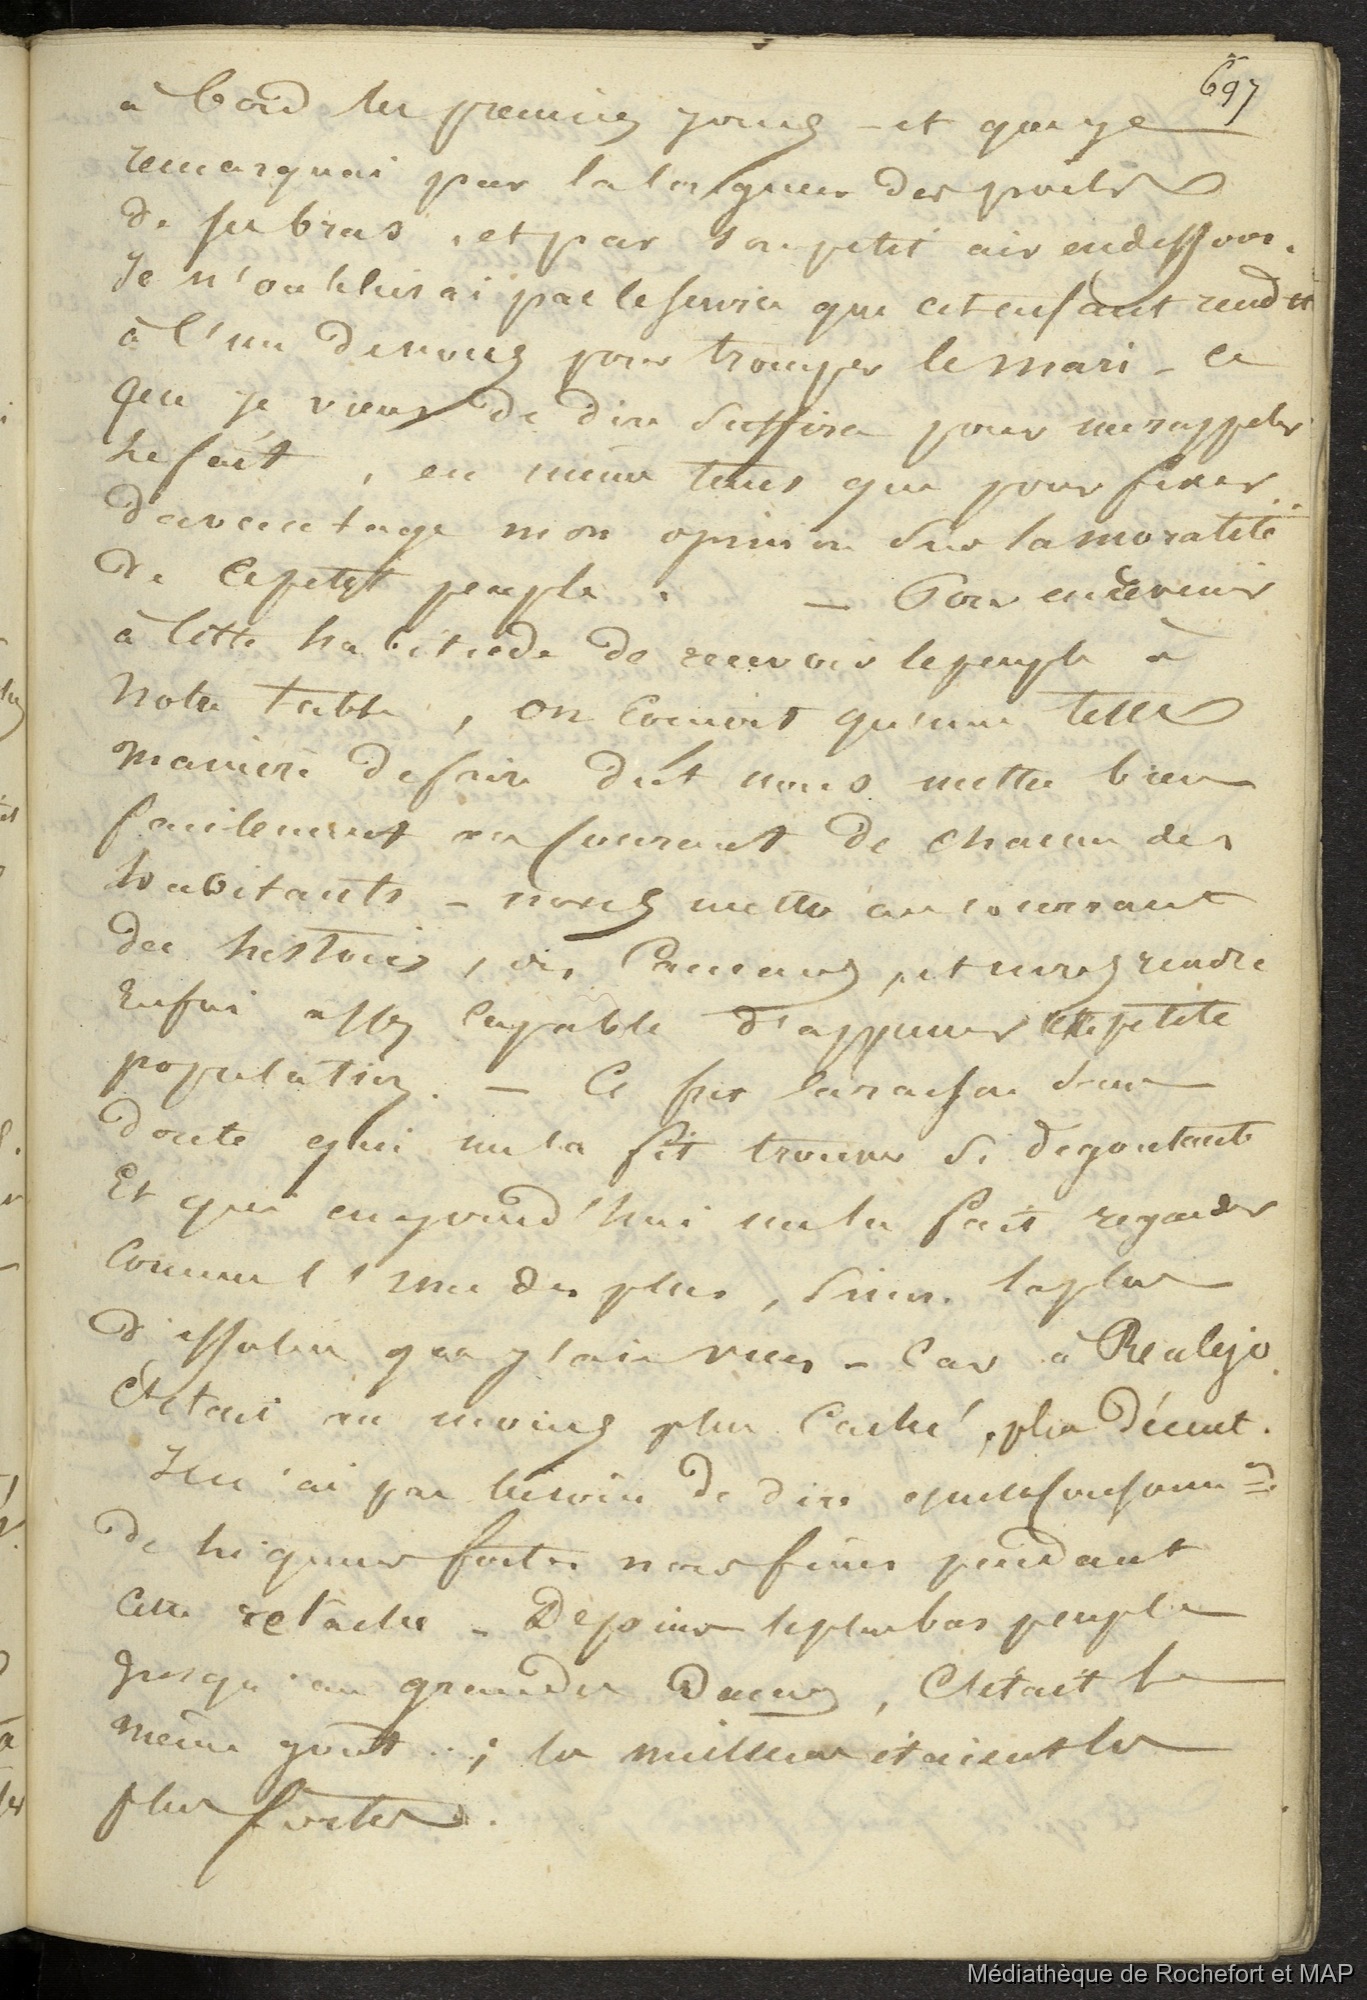 697
à bord les premiers jours - et que je
remarquai par la longueur des poils
de ses bras, et par son petit air en dessous.
Je n'oublierai pas le service que cet enfant rendit
à l'un de nous pour tromper le mari - ce
que je viens de dire suffira pour me rappeler
le fait, en même tems que pour fixer
d'avantage mon opinion sur la moralité
de ce petit peuple. - Pour en revenir
à cette habitude de recevoir le peuple à
notre table, on conçoit qu'une telle
manière de faire dût nous mettre bien
facilement au courant de chacun des
habitants - nous mettre au courrant
des histoires, des cancans, et nous rendre
enfin assez capable d'apprécier cette petite
population. - Ce fut la raison sans
doute qui me la fit trouver si dégoutante
et qui aujourd'hui me la fait regarder
comme l'une des plus, sinon la plus
dissolue que j'aie vues - car à Realejo
c'était au moins plus caché, plus décent.
Je n'ai pas besoin de dire quelle consomm=on
de liqueurs fortes nous fîmes pendant
cette relâche - Depuis le plus bas peuple
jusqu'au grandes Dames, c'était le
même goût..; les meilleures étaient les
plus fortes.
Médiathèque de Rochefort et MAP